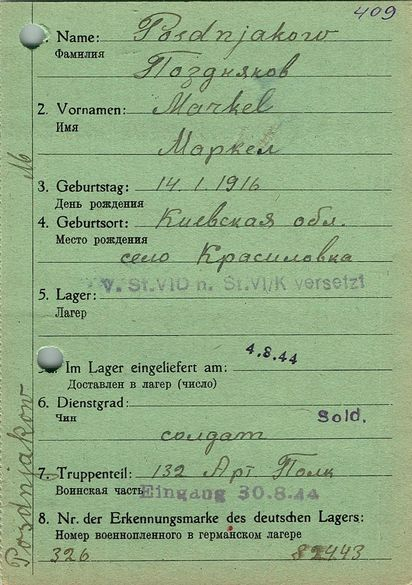 409
1. Name: Posdnjakow
Фамилия Поздняков
2. Vornamen: Markel
Имя
Маркел
3. Geburtstag: 14.1.1916
День рождения
4. Geburtsort: Киевская обл.
Место рождения
село Красиловка
V. St.VID n. St.VI/K versetzt
5. Lager:
Лагерь
4.8.44
Im Lager eingeliefert am:
Доставлен в лагерь (число)
6. Dienstgrad: Sold.
Чин
солдат
7. Truppenteil: 132 Арт Полк
Воинская часть Eingang 30.8.44
8. Nr. der Erkennungsmarke des deutschen Lagers:
Номер военнопленного в германском лагере
326 82443
Posdnjakow